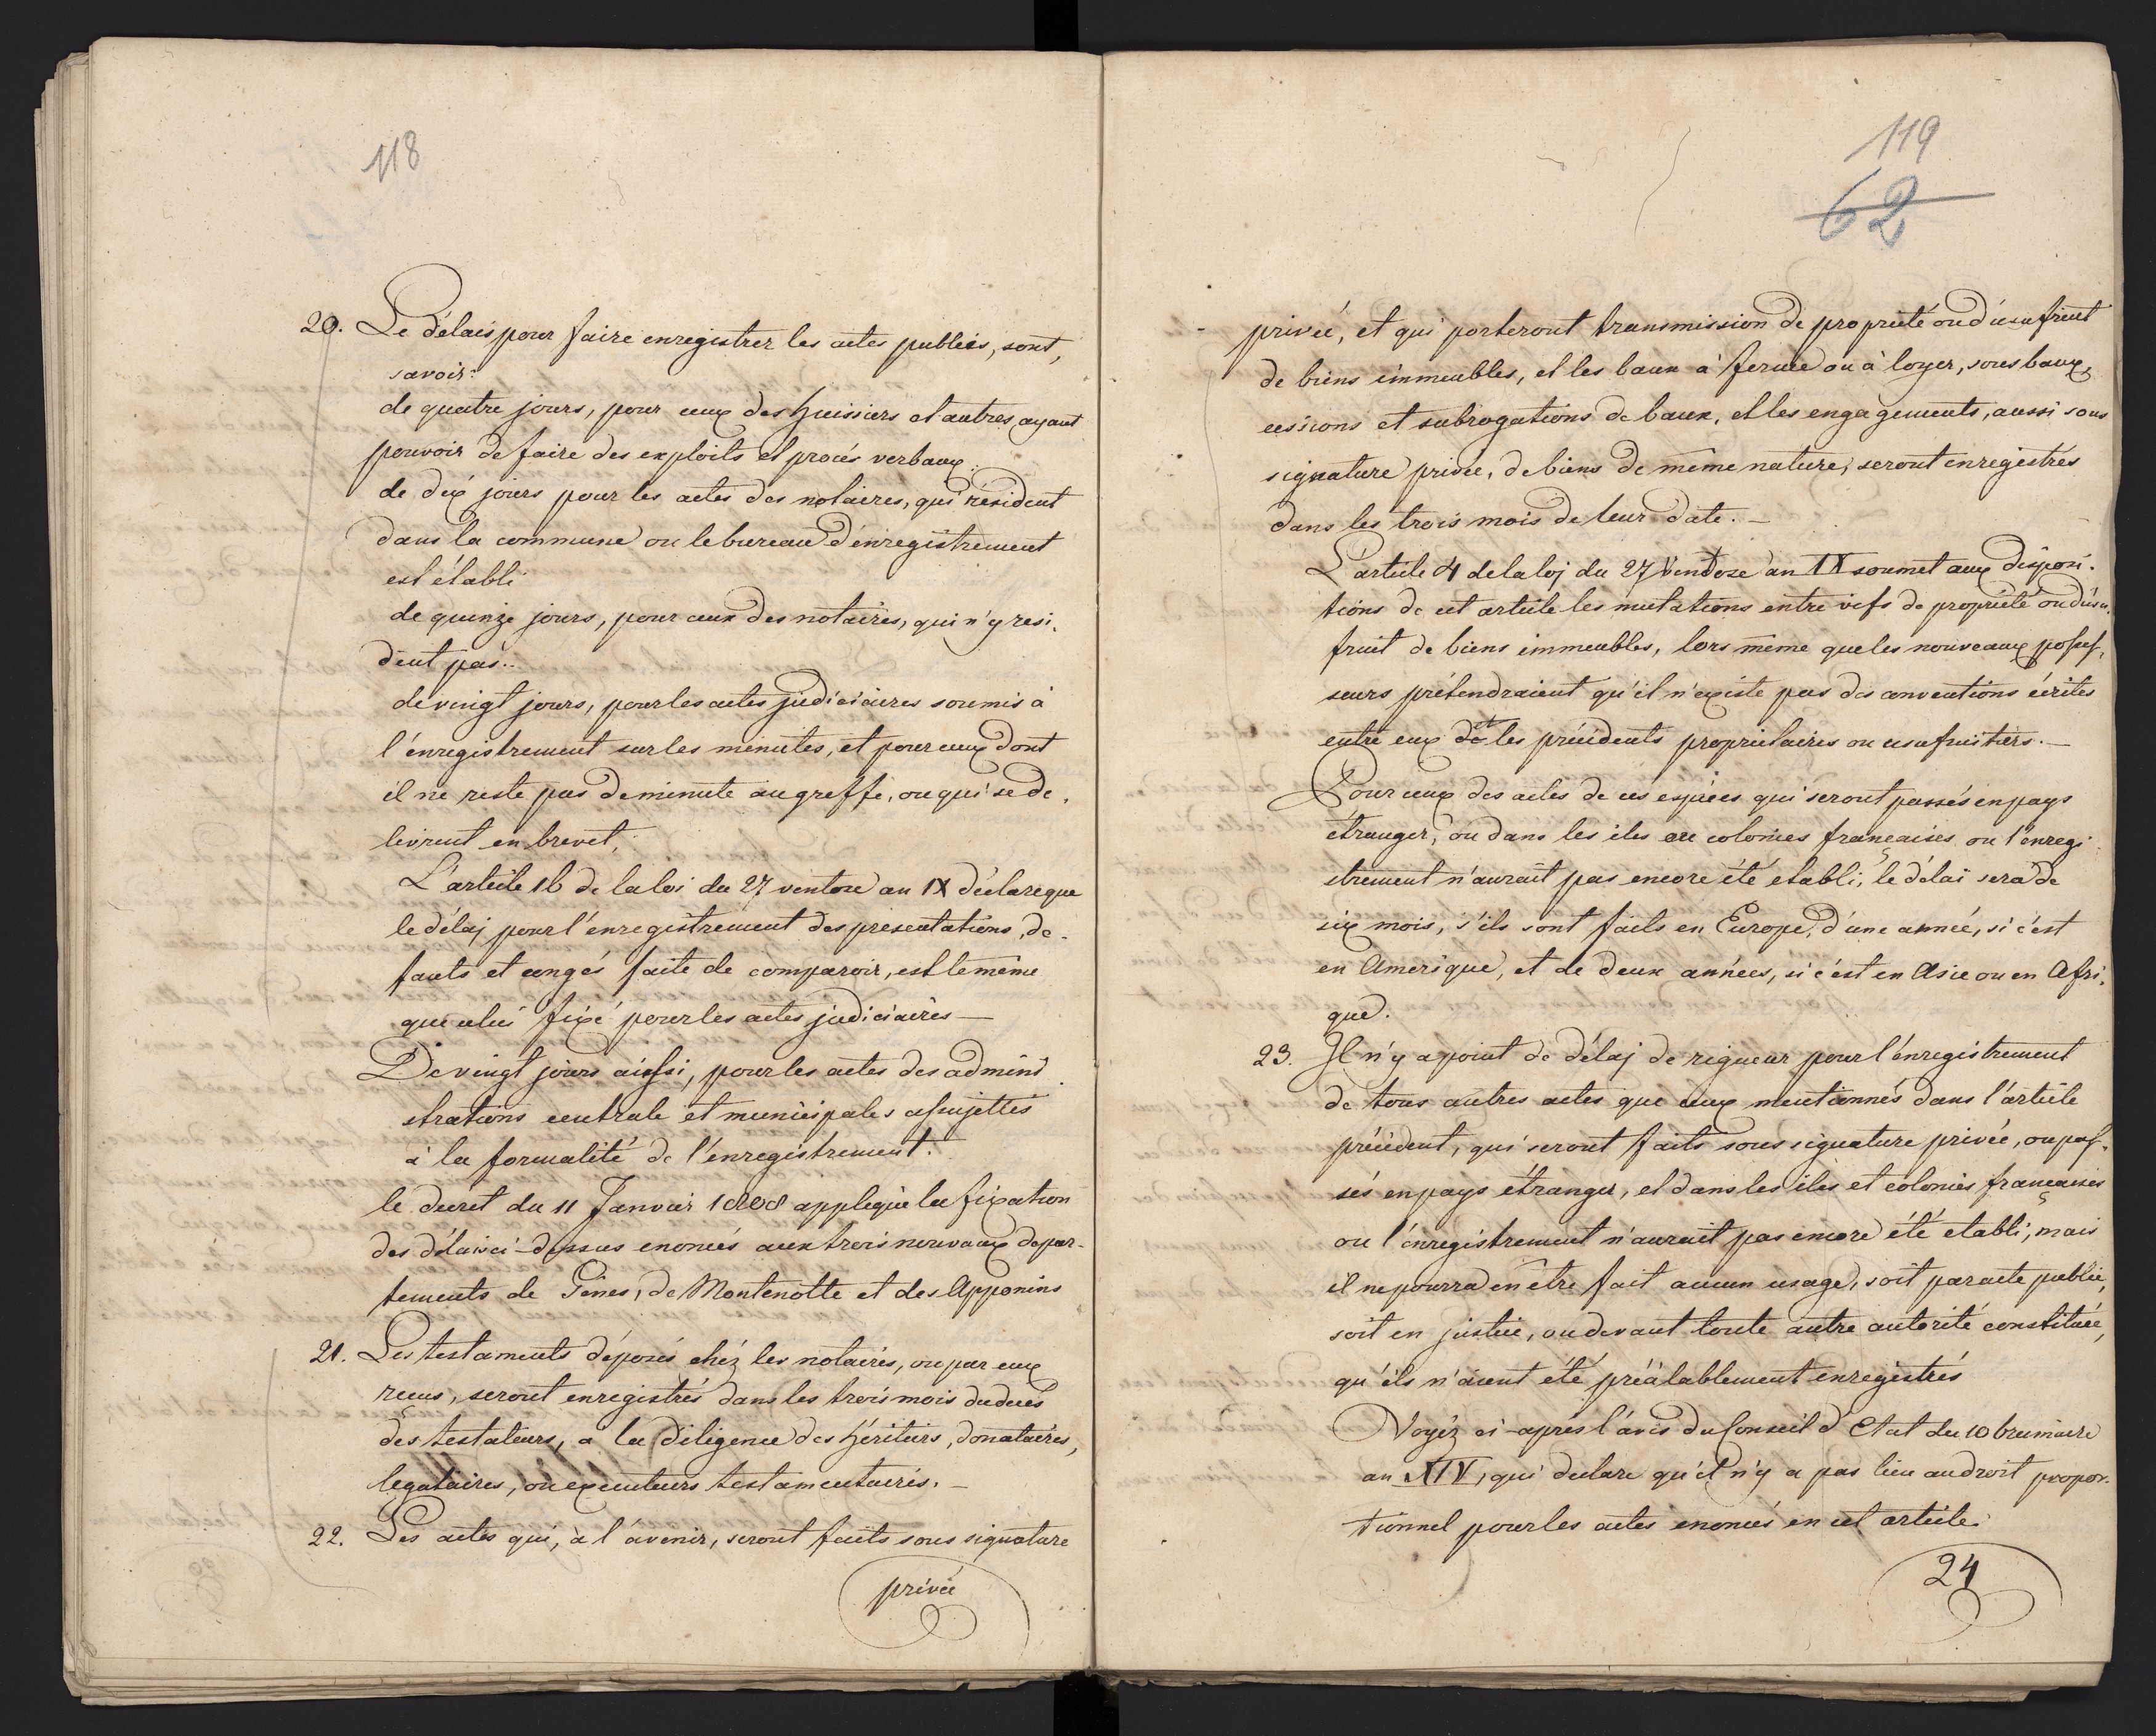 118
20. Le délais pour faire enregistrer les actes publics, sont,
savoir:
de quatre jours, pour ceux des huissiers et autres ayant
pouvoir de faire des exploits et procés verbaux.
de dix jours pour les actes des notaires, qui résident
dans la commune ou le bureau d'enregistrement
est établi
de quinze jours, pour ceux des notaires, qui n'y resi-
dent pas..
de vingt jours, pour les actes judiciaires soumis à
l'enregistrement sur les minutes, et pour ceux dont
il ne reste pas de minute au greffe, ou qui se de-
livrent en brevet;
L'article 16 de la loi du 27 ventose an IX déclare que
le délaj pour l'enregistrement des presentations, de-
fauts et congés faite de comparoir, est le même
que celui fixé pour les actes judiciaires —
De vingt jours aussi, pour les actes des admini
strations centrale et municipales assujettis
à la formalité de l'enregistrement.
le decret du 11 Janvier 1808 applique la fixation
des délais ci-dessus enoncés aux trois nouvaux depar-
tements de Gênes, de Montenotte et des Apponins
21. Les testaments déposés chéz les notaires, ou par eux
reçus, seront enregistrés dans les trois mois du decès
des testateurs, a la diligence des héritiers, donataires,
legataires, ou executeurs testamentaires. —
22. Les actes qui, à l'avenir, seront faits sous signature
privée
119
62
privée, et qui porteront transmission de proprieté ou d'usufruit
de biens immeubles, et les baux à ferme ou à loyer, sous baux,
cessions et subrogations de baux, et les engagements, aussi sous
signature privée, de biens de même nature, seront enregistrés
dans les trois mois de leur date. —
L'article 4 de la loj du 27 Ventose an IX soumet aux disposi-
tions de cet article les mutations entre vifs de proprieté ou d'usu-
fruit de biens immeubles, lors même que les nouveaux posses-
seurs prétendraient qu'il n'existe pas des conventions écrites
entre eux et les précédents proprietaires ou usufruitiers. —
Pour ceux des actes de ces espèces qui seront passés en pays
étranger, ou dans les iles ou colonies françaises ou l'enregi
strement n'aurait pas encore été etabli, le délai sera de
six mois, s'ils sont faits en Europe, d'une année, si c'est
en Amerique, et de deux années, si c'est en Asie ou en Afri-
que.
23. Il n'y a point de délaj de rigueur pour l'enregistrement
de tous autres actes que ceux mentionnés dans l'article
précédent, qui seront faits sous signature privée, ou pas-
sés en pays étranger, et dans les iles et colonies françaises
ou l'enregistrement n'aurait pas encore été etabli; mais
il ne pourra en être fait aucun usage, soit par acte public,
soit en justice, ou devant toute autre autorité constituée,
qu'ils n'aient été préalablement enregistrés
Voyéz ci-après l'avis du Conseil d'Etat du 10 brumaire
an XIV, qui declare qu'il n'y a pas lieu au droit propor-
tionnel pour les actes enoncés en cet article.
24